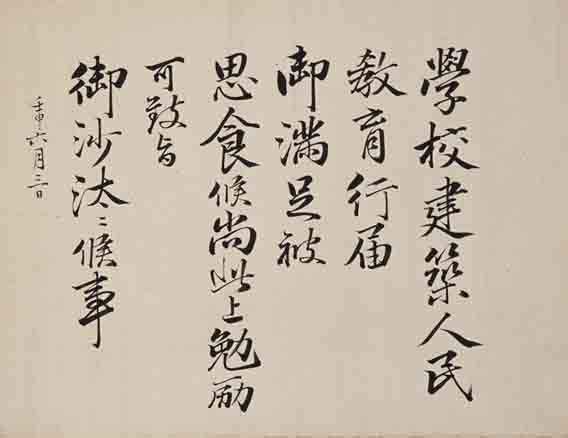 學校建築人民
教育行届
御滿足被
思食候尚此上勉励
可致旨
御沙汰ニ候事
壬申六月三日